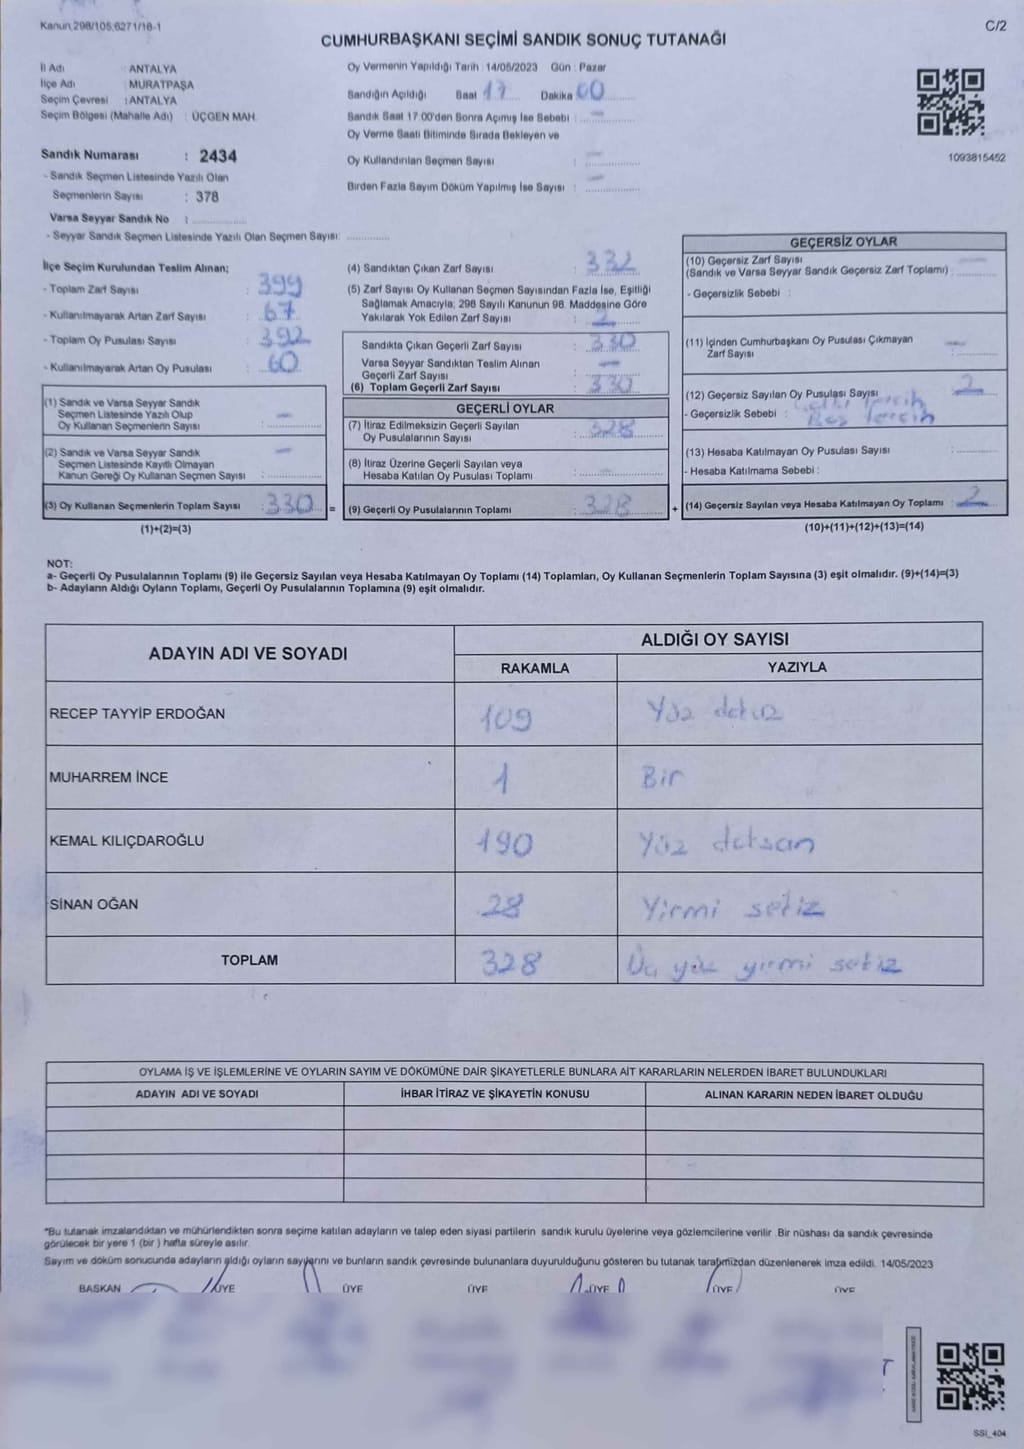 Kanun 298/105,6271/18-1
C/2
CUMHURBAŞKANI SEÇİMİ SANDIK SONUÇ TUTANAĞI
İl Adı : ANTALYA
İlçe Adı : MURATPAŞA
Seçim Çevresi : ANTALYA
Seçim Bölgesi (Mahalle Adı) : ÜÇGEN MAH.
Sandık Numarası : 2434
- Sandık Seçmen Listesinde Yazılı Olan
Seçmenlerin Sayısı : 378
Varsa Seyyar Sandık No : ..............
- Seyyar Sandık Seçmen Listesinde Yazılı Olan Seçmen Sayısı: ............
Oy Vermenin Yapıldığı Tarih : 14/05/2023 Gün : Pazar
Sandığın Açıldığı Saat 17 Dakika 00
Sandık Saat 17:00'den Sonra Açımış İse Sebebi : —
Oy Verme Saati Bitiminde Sırada Bekleyen ve
Oy Kullandırılan Seçmen Sayısı : —
Birden Fazla Sayım Döküm Yapılmış İse Sayısı : —
1093815452
İlçe Seçim Kurulundan Teslim Alınan;
- Toplam Zarf Sayısı : 399
- Kullanılmayarak Artan Zarf Sayısı : 67
- Toplam Oy Pusulası Sayısı : 392
- Kullanılmayarak Artan Oy Pusulası : 60
(1) Sandık ve Varsa Seyyar Sandık
Seçmen Listesinde Yazılı Olup
Oy Kullanan Seçmenlerin Sayısı : —
(2) Sandık ve Varsa Seyyar Sandık
Seçmen Listesinde Kayıtlı Olmayan
Kanun Gereği Oy Kullanan Seçmen Sayısı : —
(3) Oy Kullanan Seçmenlerin Toplam Sayısı : 330 =
(1)+(2)=(3)
(4) Sandıktan Çıkan Zarf Sayısı : 332
(5) Zarf Sayısı Oy Kullanan Seçmen Sayısından Fazla İse, Eşitliği
Sağlamak Amacıyla; 298 Sayılı Kanunun 98. Maddesine Göre
Yakılarak Yok Edilen Zarf Sayısı : 2
Sandıkta Çıkan Geçerli Zarf Sayısı : 330
Varsa Seyyar Sandıktan Teslim Alınan
Geçerli Zarf Sayısı : —
(6) Toplam Geçerli Zarf Sayısı : 330
GEÇERLİ OYLAR
(7) İtiraz Edilmeksizin Geçerli Sayılan
Oy Pusulalarının Sayısı : 328
(8) İtiraz Üzerine Geçerli Sayılan veya
Hesaba Katılan Oy Pusulası Toplamı : —
(9) Geçerli Oy Pusulalarının Toplamı : 328 +
GEÇERSİZ OYLAR
(10) Geçersiz Zarf Sayısı —
(Sandık ve Varsa Seyyar Sandık Geçersiz Zarf Toplamı) :
- Geçersizlik Sebebi :
(11) İçinden Cumhurbaşkanı Oy Pusulası Çıkmayan
Zarf Sayısı : —
(12) Geçersiz Sayılan Oy Pusulası Sayısı : 2
- Geçersizlik Sebebi : tercih
Boş tercih
(13) Hesaba Katılmayan Oy Pusulası Sayısı :
- Hesaba Katılmama Sebebi :
(14) Geçersiz Sayılan veya Hesaba Katılmayan Oy Toplamı : 2
(10)+(11)+(12)+(13)=(14)
NOT:
a- Geçerli Oy Pusulalarının Toplamı (9) ile Geçersiz Sayılan veya Hesaba Katılmayan Oy Toplamı (14) Toplamları, Oy Kullanan Seçmenlerin Toplam Sayısına (3) eşit olmalıdır. (9)+(14)=(3)
b- Adayların Aldığı Oyların Toplamı, Geçerli Oy Pusulalarının Toplamına (9) eşit olmalıdır.
ADAYIN ADI VE SOYADI
ALDIĞI OY SAYISI
RAKAMLA YAZIYLA
RECEP TAYYİP ERDOĞAN 109 Yüz dokuz
MUHARREM İNCE 1 Bir
KEMAL KILIÇDAROĞLU 190 Yüz doksan
SİNAN OĞAN 28 Yirmi sekiz
TOPLAM 328 Üç yüz yirmi sekiz
OYLAMA İŞ VE İŞLEMLERİNE VE OYLARIN SAYIM VE DÖKÜMÜNE DAİR ŞİKAYETLERLE BUNLARA AİT KARARLARIN NELERDEN İBARET BULUNDUKLARI
ADAYIN ADI VE SOYADI İHBAR İTİRAZ VE ŞİKAYETİN KONUSU ALINAN KARARIN NEDEN İBARET OLDUĞU
*Bu tutanak imzalandıktan ve mühürlendikten sonra seçime katılan adayların ve talep eden siyasi partilerin sandık kurulu üyelerine veya gözlemcilerine verilir .Bir nüshası da sandık çevresinde
görülecek bir yere 1 (bir ) hafta süreyle asılır.
Sayım ve döküm sonucunda adayların aldığı oyların sayılarını ve bunların sandık çevresinde bulunanlara duyurulduğunu gösteren bu tutanak tarafımızdan düzenlenerek imza edildi. 14/05/2023
BAŞKAN ÜYE ÜYE ÜYE ÜYE ÜYE ÜYE
SSI_404